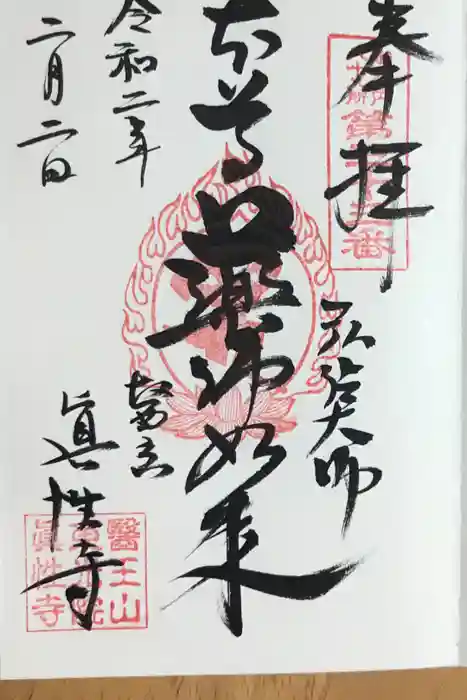 奉拝
弘法大師
本尊薬師如来
令和二年
二月二日
眞性寺
醫王山
眞性寺